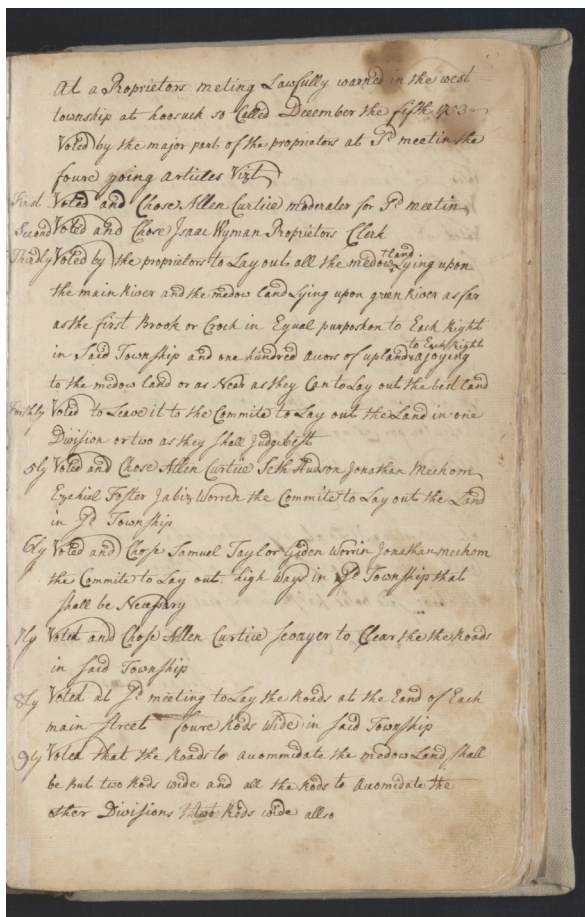 At a Proprietors meting Lawfully warned in the west
township at hoosuck so Called December the fifth 1753
Voted by the major part of the proprietors at Sd meetin the
foure going articles Vizt
First Voted and Chose Allen Curtice moderater for Sd meetin
Second Voted and Chose Isaac Wyman Proprietors Clerk
Thirdly Voted by the proprietors to Lay out all the medow Land Lying upon
the main River and the medow Land Lying upon green River as far
as the first Brook or Crock in Equal purposhon to Each Right
in Said Township and one hundred acors of upland to Each Right ajoying
to the medow land or as Near as they Can to Lay out the best Land
Forthly Voted to Leave it to the Commite to Lay out the Land in one
Division or two as they shall Judge best
5ly Voted and Chose Allen Curtice Seth Hudson Jonathan Mechom
Ezekiel Foster Jabiz Worren the Commite to Lay out the Land
in Sd Township
6ly Voted and Chose Samuel Taylor Giden Worrin Jonathan mechom
the Commite to Lay out high ways in Sd Township that
shall be Necessary
7ly Voted and Chose Allen Curtice seoayer to Clear the the Roads
in said Township
8ly Voted at Sd meeting to Lay the Roads at the Eand of Each
main Street foure Rods wide in said Township
9ly Voted that the Roads to acommidate the medow Land shall
be but two Rods wide and all the Rods to acomidate the
other Divisions two Rods wide allso